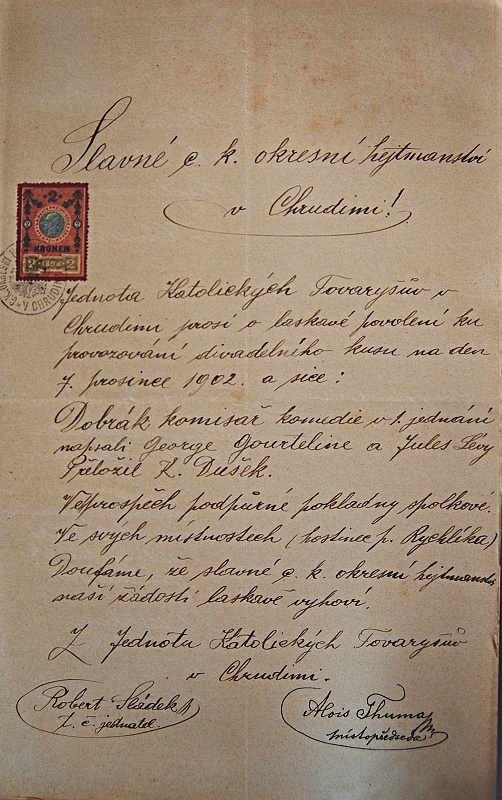 Slavné c. k. okresní hejtmanství
v Chrudimi!
2
KRONEN
2 1898 2
V CHRUDI
Jednota Katolických Tovaryšův v
Chrudimi prosí o laskavé povolení ku
provozování divadelního kusu na den
7. prosince 1902. a sice:
Dobrák komisař komedie v 1. jednání
napsali George Gourteline a Jules Lévy
Přeložil K. Dušek.
Ve prospěch podpůrné pokladny spolkové.
Ve svých místnostech (hostinec p. Rychlíka)
Doufáme, že slavné c. k. okresní hejtmanství
naší žádosti laskavě vyhoví.
Z Jednotu Katolických Tovaryšův
v Chrudimi.
Robert Sládek
t. č. jednatel.
Alois Thuma
místopředseda